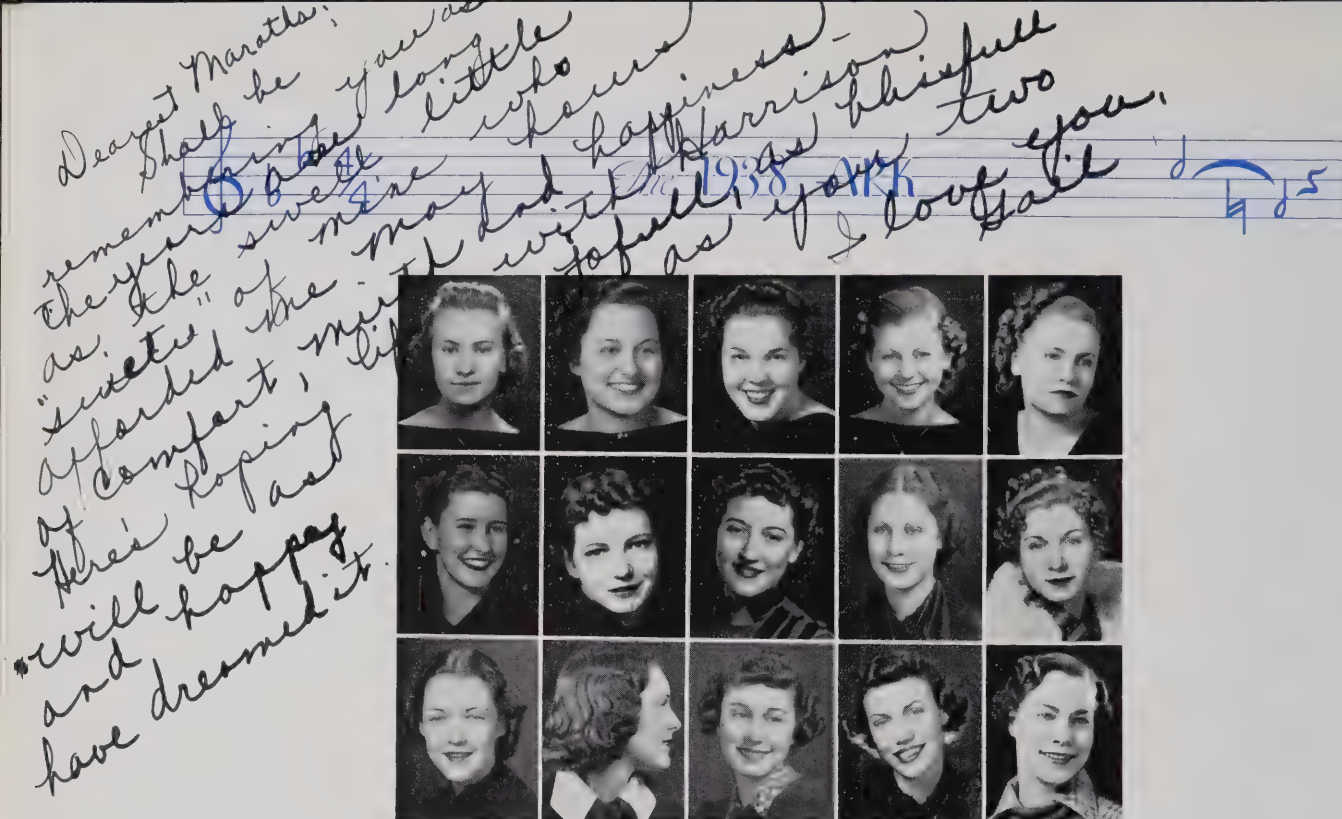 Dearest Maratha:
Shall be
remembering you as
the years long
as the sweet little
"suetie" of mine who
afforded me many hours
of comfort, mirth and happiness-
Here's hoping life with Harrison
will be as as blisfull
and happy as you two
have dreamed it. I love you,
Gail
The 1938 ARK